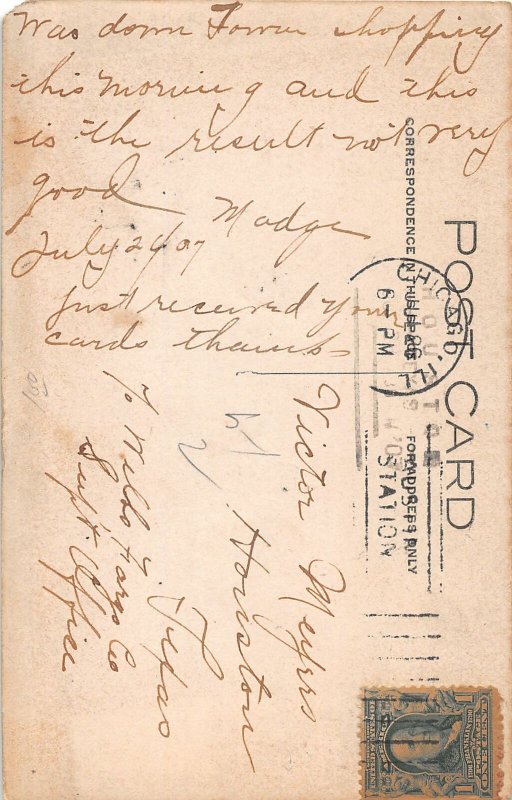 Was down Town shopping
this morning and this
is the result not very
good Madge
July 26 07
Just received your
cards thanks
POST CARD
CORRESPONDENCE IN THIS SPACE
FOR ADDRESS ONLY
CHICAGO, ILL
6-PM
STATION
Victor Meyers
Houston
Texas
% Wells Fargo Co
Supt Office
UNITED STATES OF
FRANKLIN
1